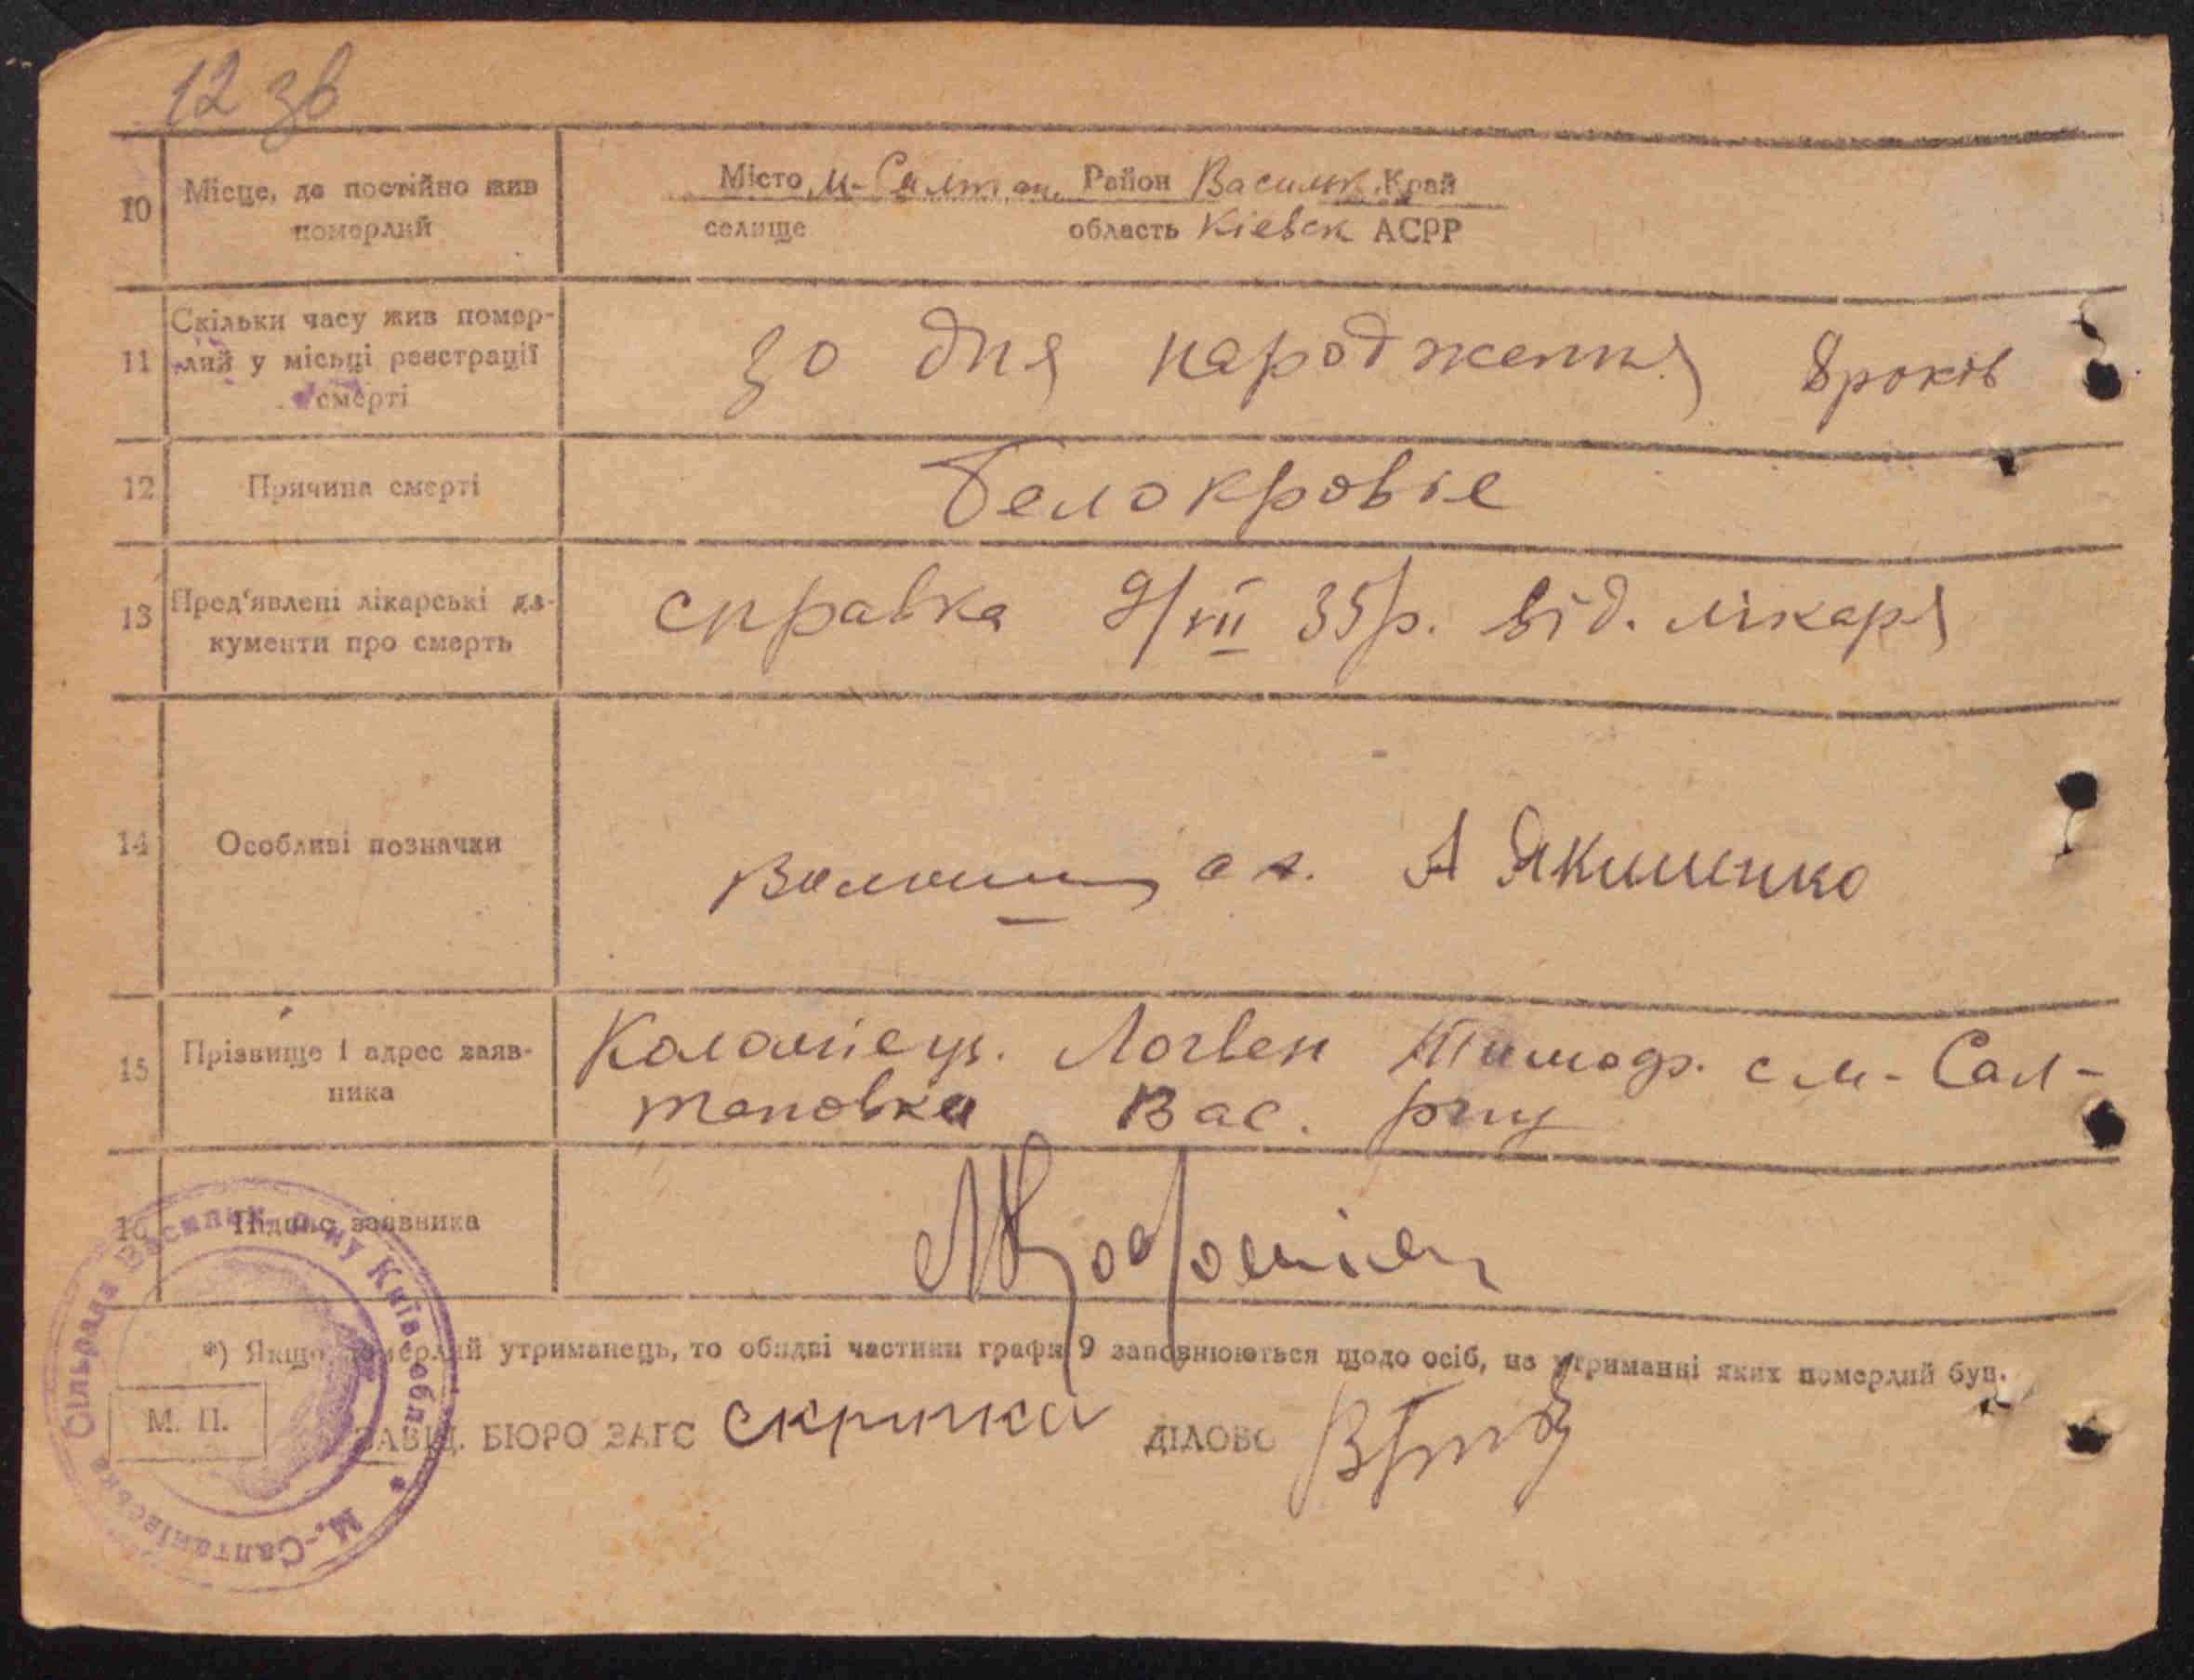 12 зв
10 Місце, де постійно жив померлий
Місто м-Салтан. Район Васильк. Край
селище область Кіевск АСРР
11 Скільки часу жив помер-
лий у місьці реєстрації
смерті
зо дня народження 8 років
12 Причина смерті
Белокровіе
13 Пред'явлені лікарські до-
кументи про смерть
справка 9/VII 35р. від. лікаря
14 Особливі позначки
А Якименко
15 Прізвище і адрес заяв-
ника
Коломіець. Логвен Тимоф. с м-Сал-
тановка Вас. рну
16 Підпис заявника
*) Якщо померлий утриманець, то обидві частини графи 9 заповнюються щодо осіб, на утриманні яких померлий був.
М. П.
ЗАВІД. БЮРО ЗАГС Скрипка ДІЛОВО
М.-Салтанівська Сільрада Васильк. р-ну Київ. обл.